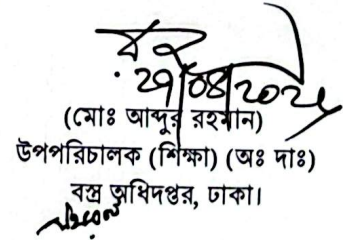 (মোঃ আব্দুর রহমান)
উপপরিচালক (শিক্ষা) (অঃ দাঃ)
বস্ত্র অধিদপ্তর, ঢাকা।